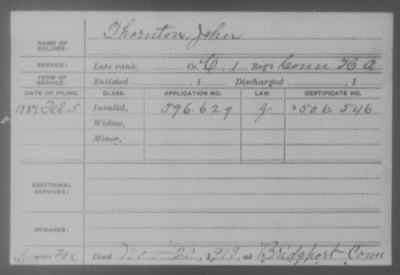 Thornton, John
NAME OF SOLDIER:
SERVICE: Late rank, Co. C, 1 Reg't Conn H. A.
TERM OF SERVICE: Enlisted , 1 Discharged , 1
DATE OF FILING. CLASS. APPLICATION NO. LAW. CERTIFICATE NO.
1887, Feb. 3 Invalid, 596.629 506.546
Widow,
Minor,
ADDITIONAL SERVICES:
REMARKS:
Died Nov 22, 1913, at Bridgport Conn